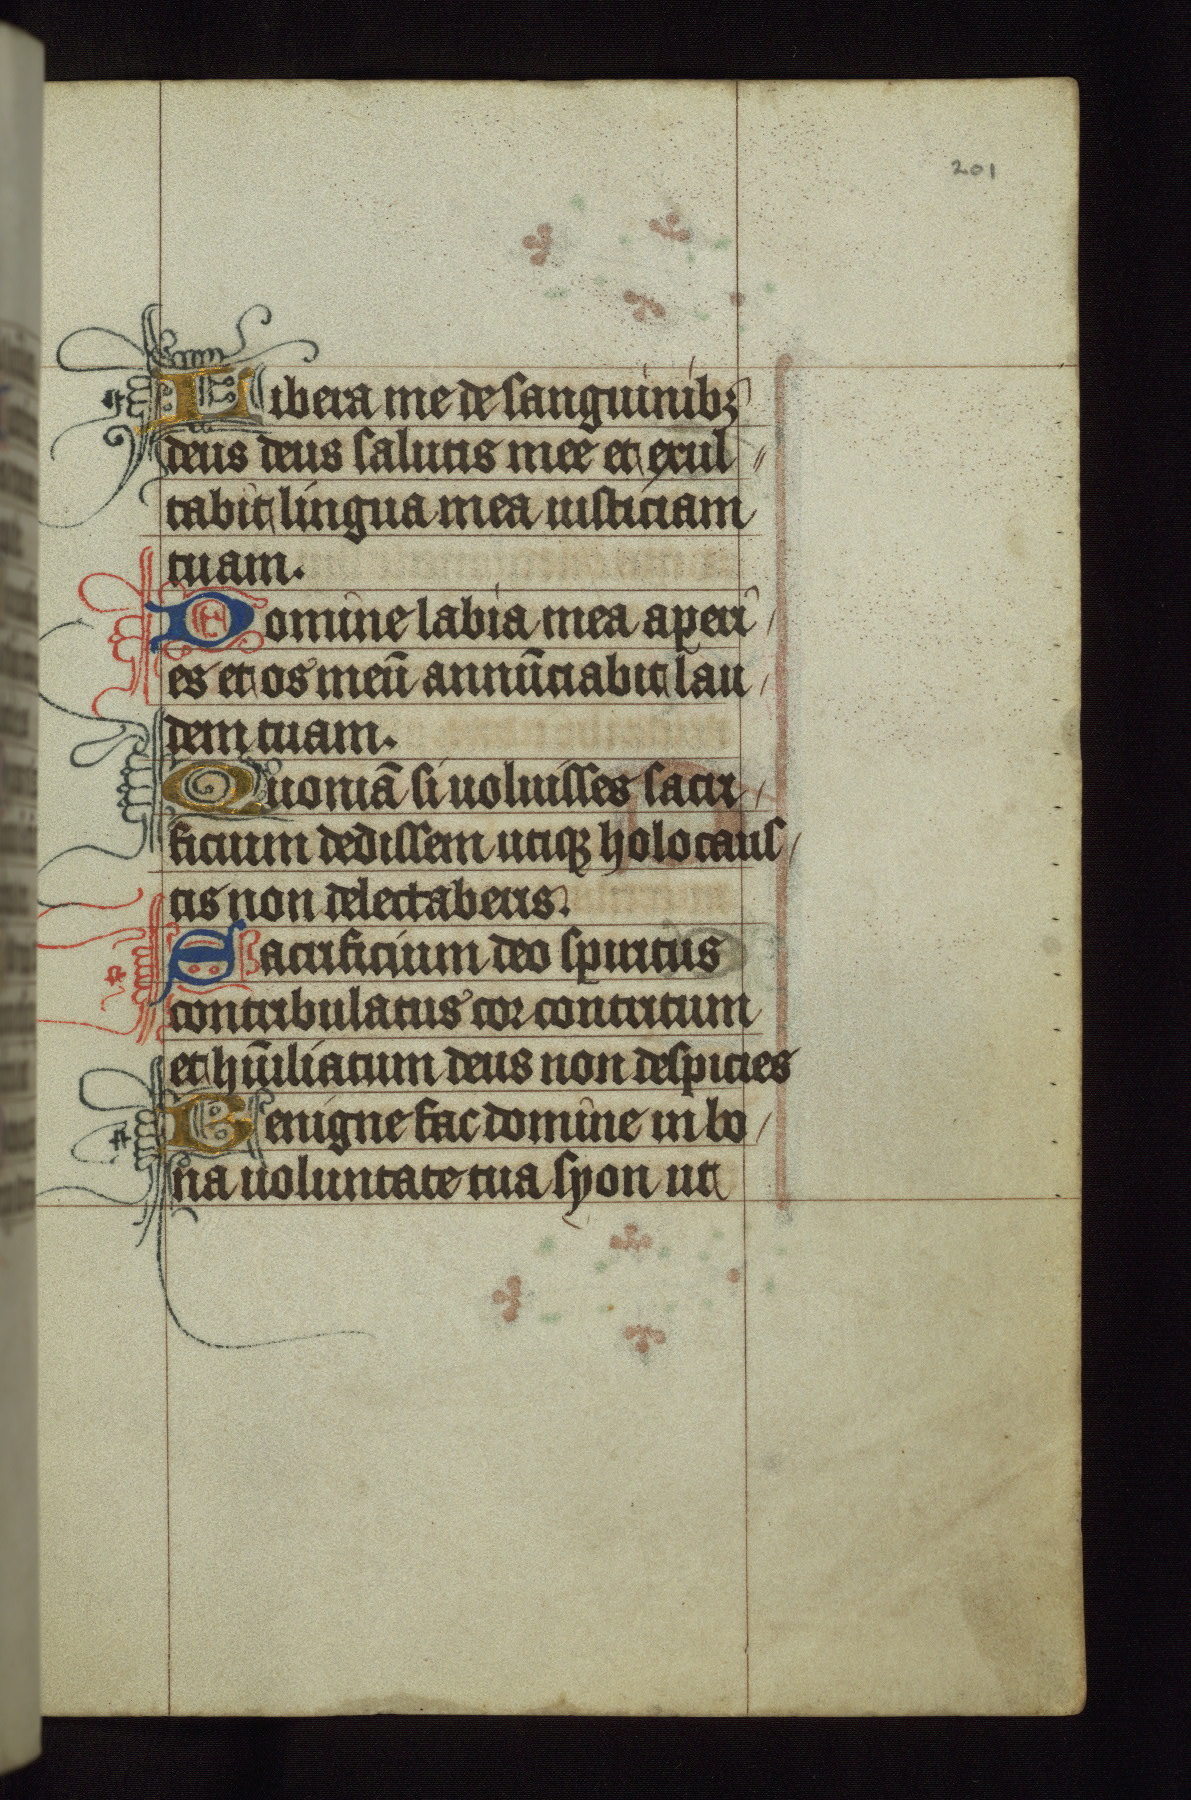 201
Libera me de sanguinibꝫ
deus deus salutis mee et exul
tabit lingua mea iusticiam
tuam.
Domine labia mea aperi
es et os meū annūciabit lau
dem tuam.
Quoniā si uoluisses sacri
ficium dedissem utiqꝫ holocaus
tis non delectaberis.
Sacrificium deo spiritus
contribulatus cor contritum
et hūiliatum deus non despicies
Benigne fac domine in bo
na uoluntate tua syon ut